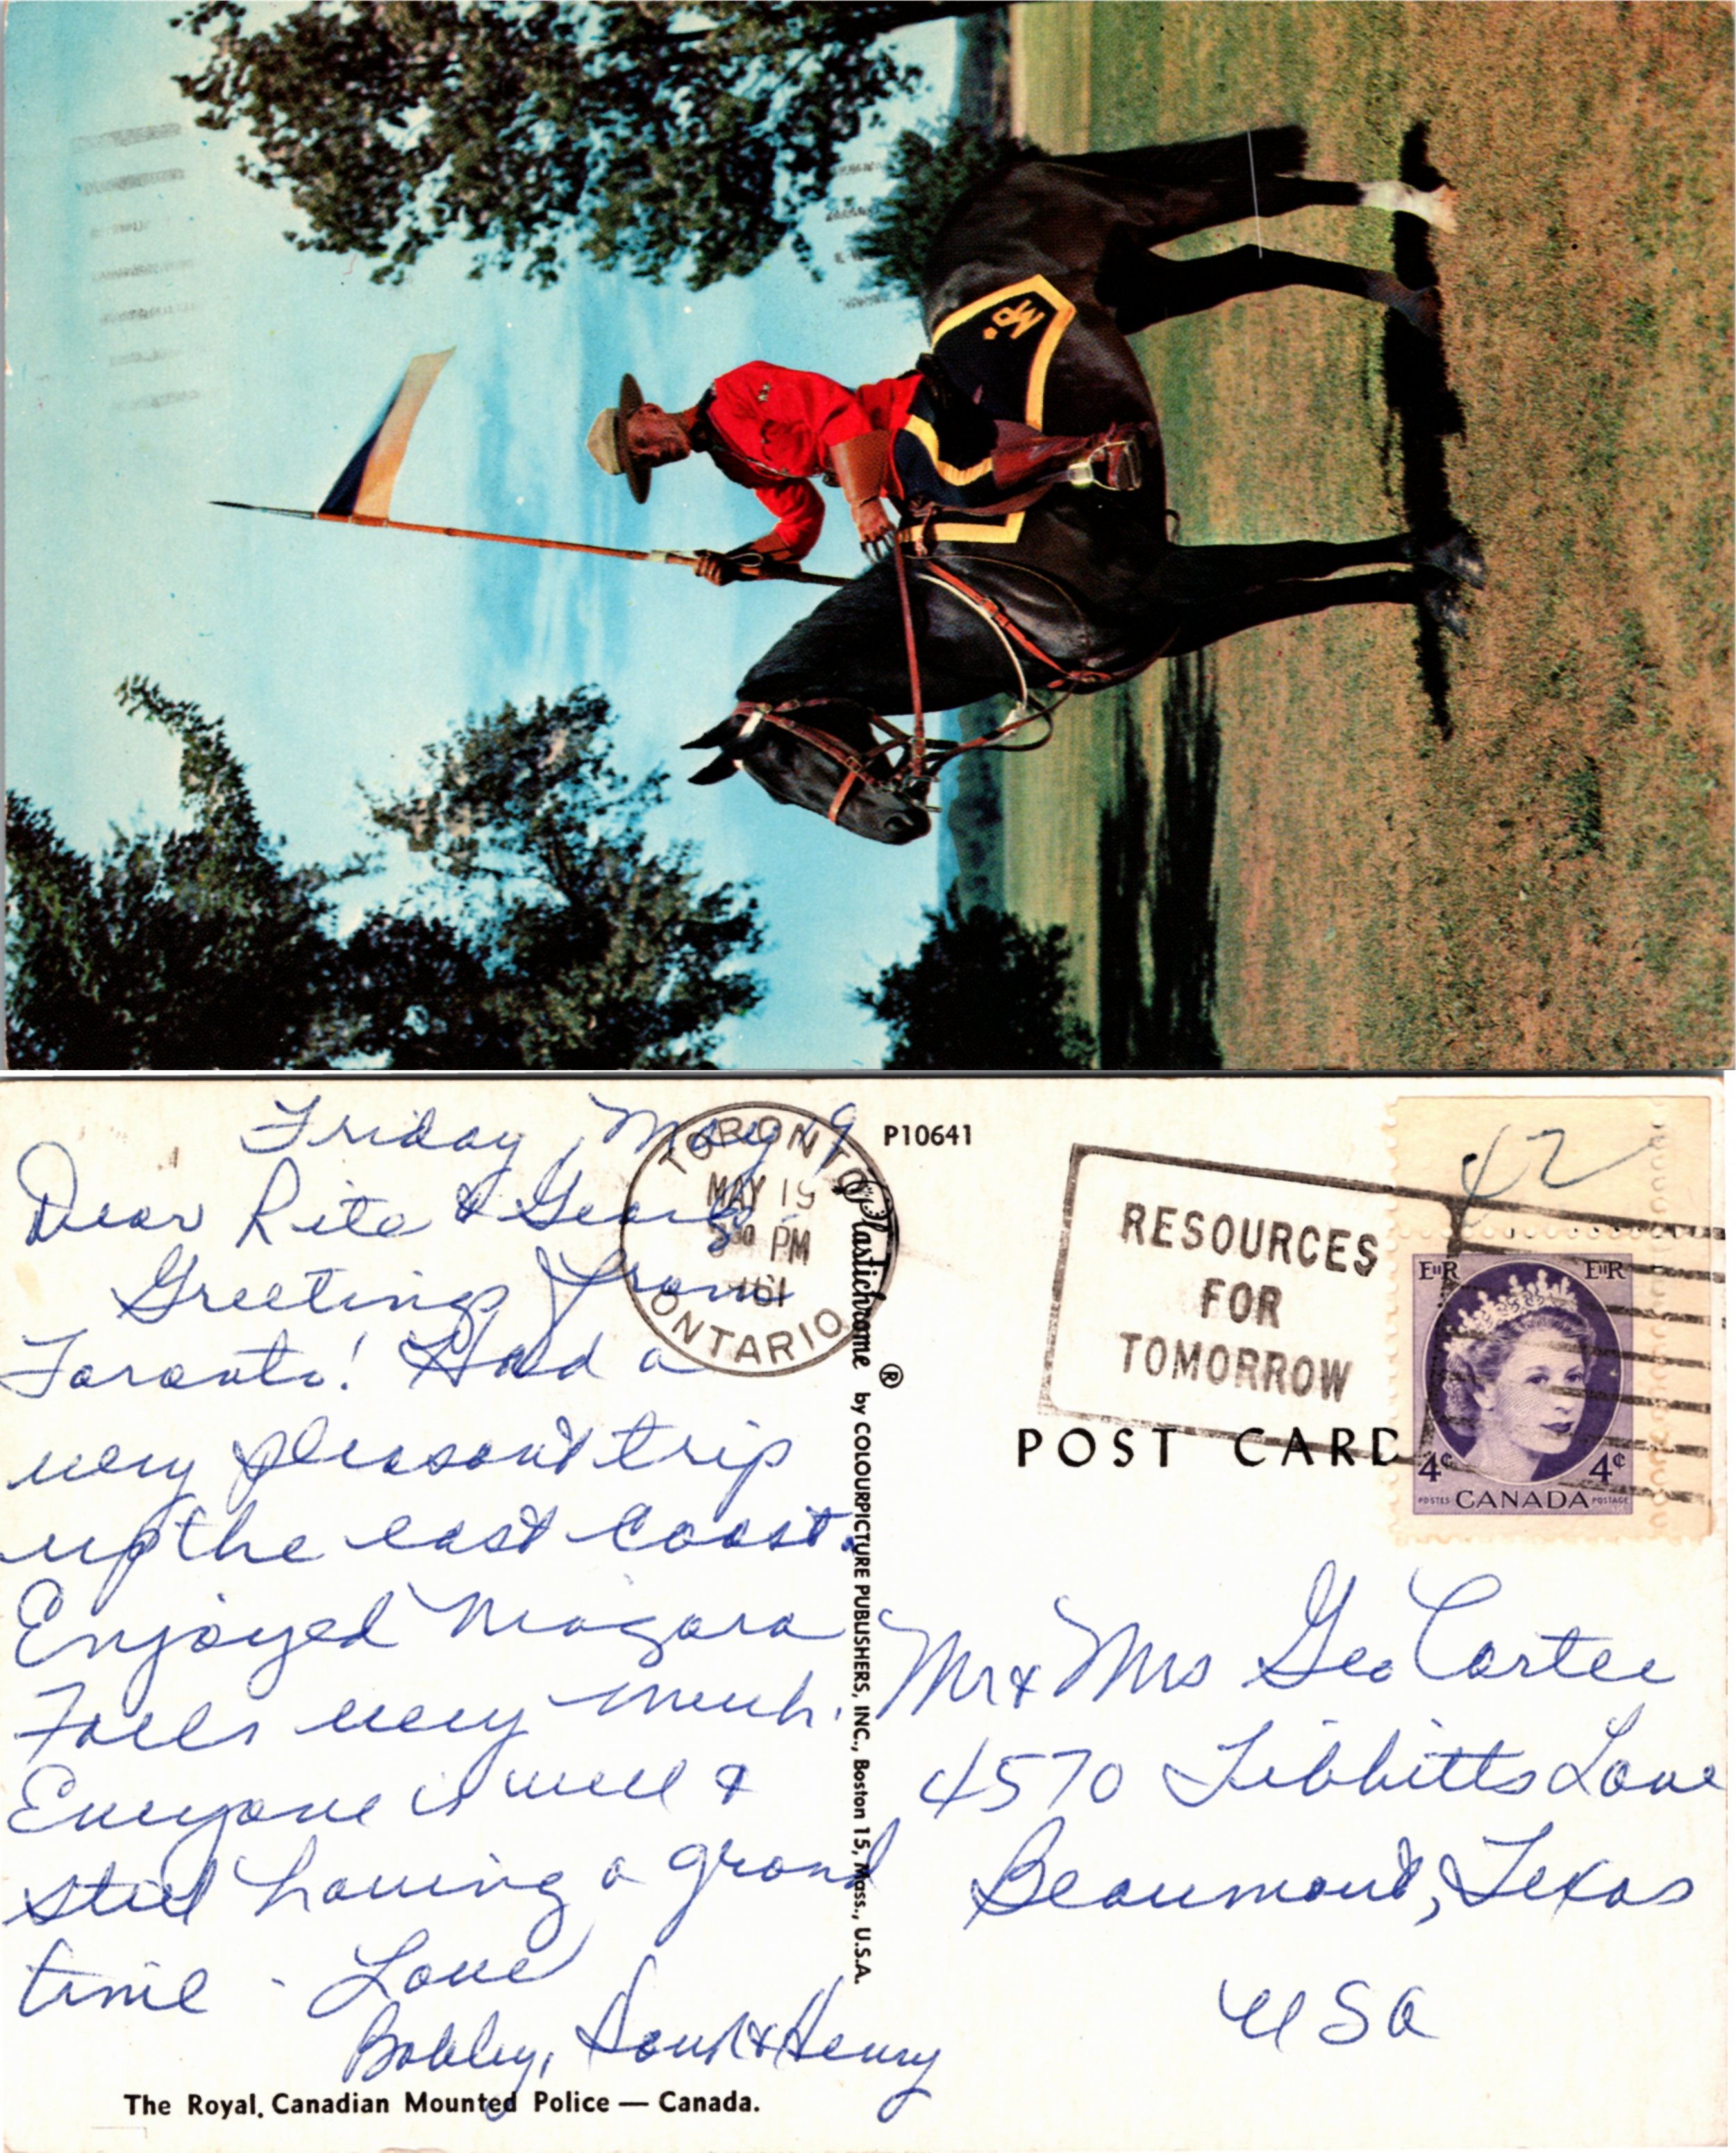 MP.
Friday, May 19
Dear Rita & George
Greetings from
Toronto! Had a
very pleasant trip
up the east coast.
Enjoyed Niagara
Falls very much.
Everyone is well &
still having a grand
time - Love
Bobby, & Henry
The Royal Canadian Mounted Police — Canada.
TORONTO
MAY 19
PM
1961
ONTARIO
P10641
Plastichrome ® by COLOURPICTURE PUBLISHERS, INC., Boston 15, Mass., U.S.A.
RESOURCES
FOR
TOMORROW
42
EIIR EIIR
4¢ 4¢
POSTES CANADA POSTAGE
POST CARD
Mr & Mrs Geo Carter
4570 Tibbitts Lane
Beaumont, Texas
USA